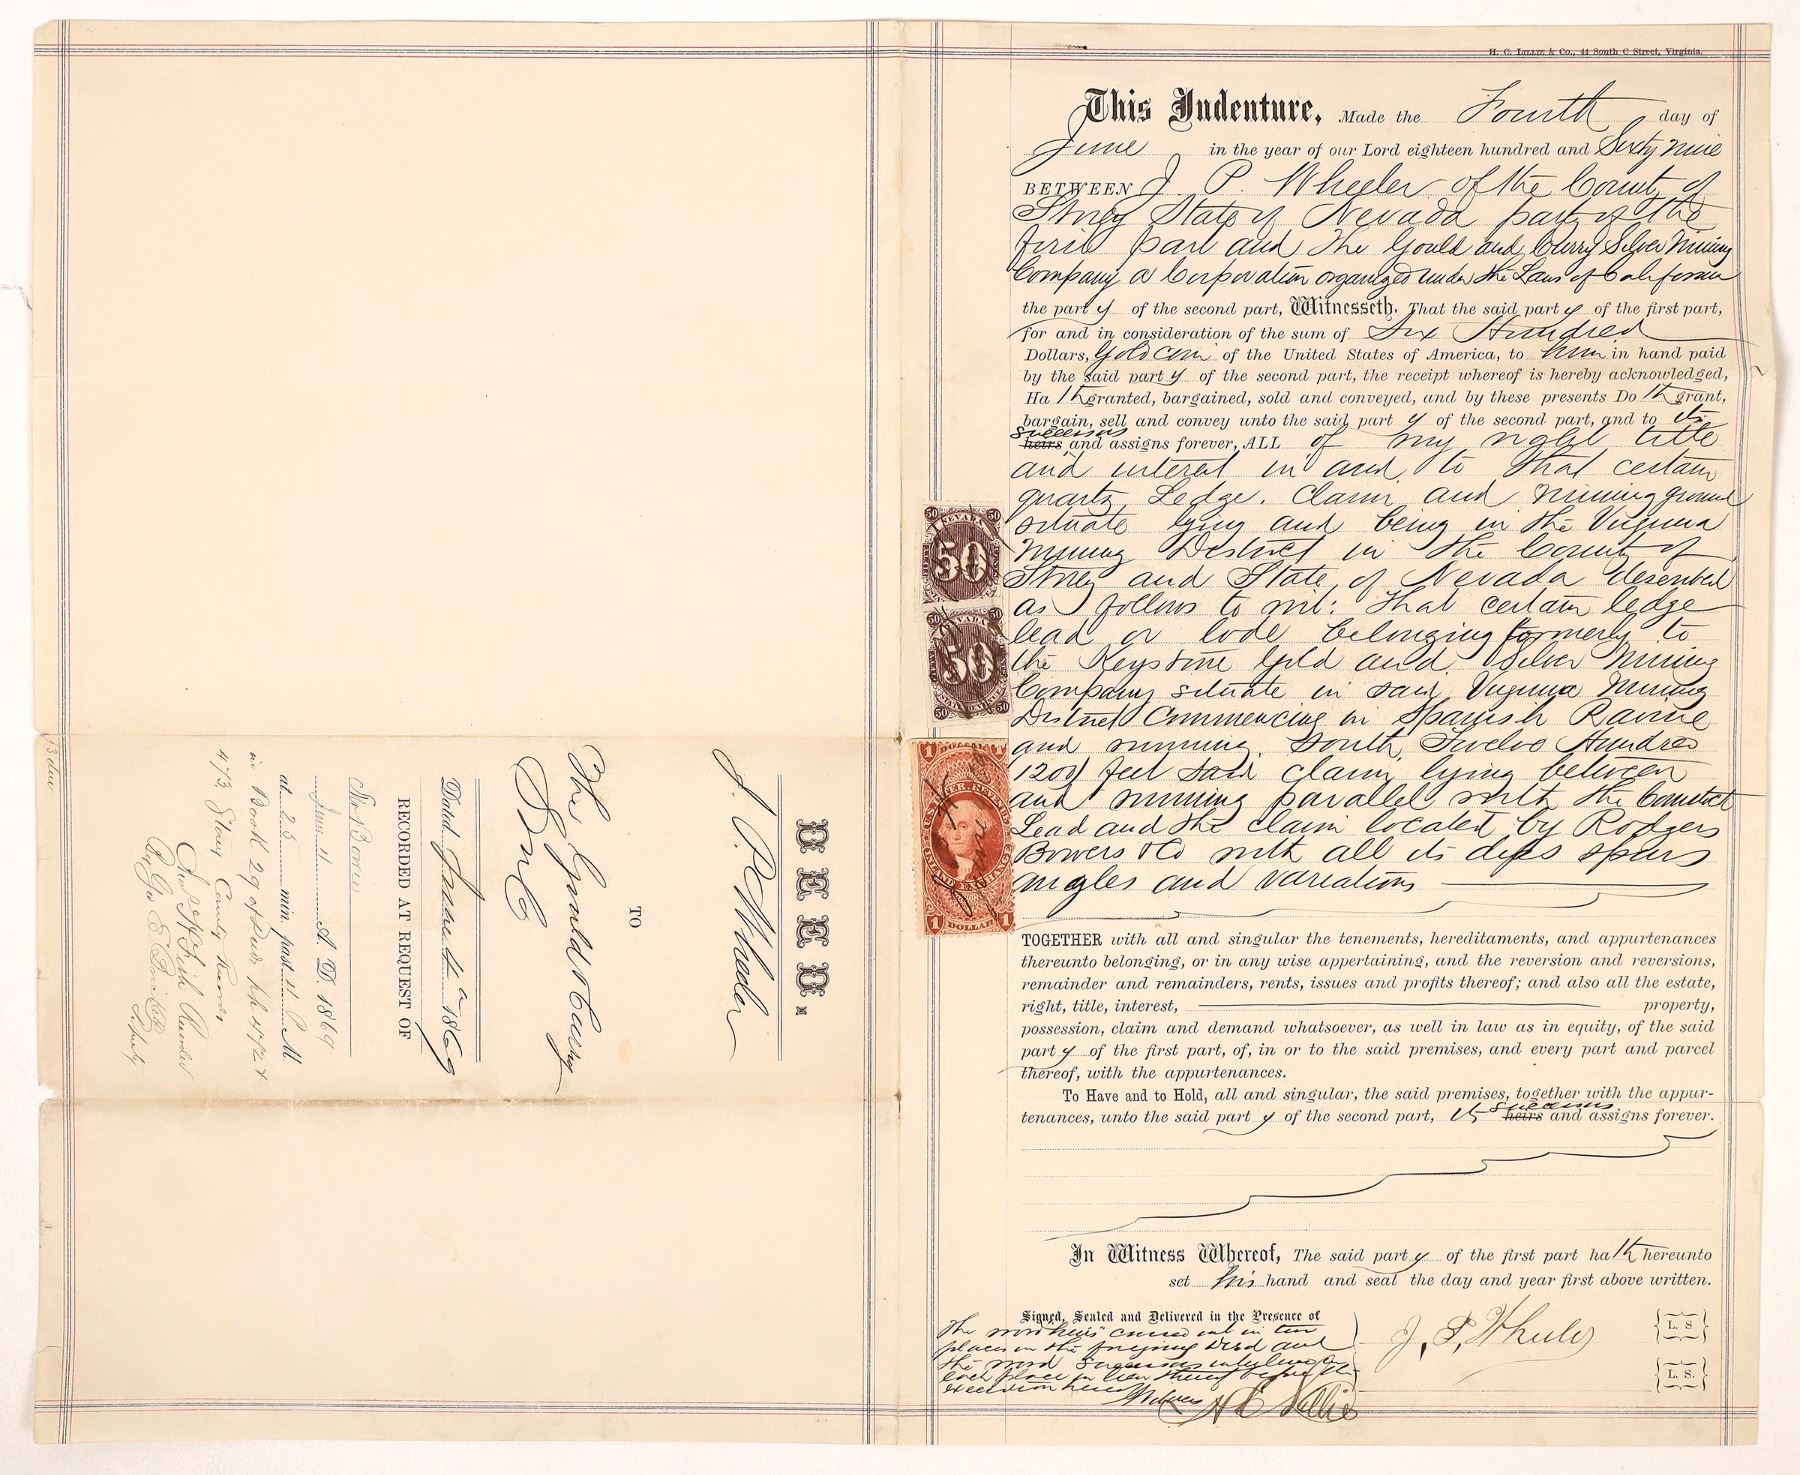 H. C. Lillie & Co., 44 South C Street, Virginia.
This Indenture, Made the Fourth day of
June in the year of our Lord eighteen hundred and Sixty nine
BETWEEN J. P. Wheeler of the County of
Storey State of Nevada party of the
first part and The Gould and Curry Silver Mining
Company a Corporation organized under the Laws of California
the party of the second part, Witnesseth, That the said party of the first part,
for and in consideration of the sum of Six Hundred
Dollars, Gold coin of the United States of America, to him in hand paid
by the said party of the second part, the receipt whereof is hereby acknowledged,
Ha th granted, bargained, sold and conveyed, and by these presents Do th grant,
bargain, sell and convey unto the said party of the second part, and to its
successors
heirs and assigns forever, ALL of my right title
and interest in and to that certain
quartz Ledge. Claim and Mining ground
situate lying and being in the Virginia
Mining District in the County of
Storey and State of Nevada described
as follows to wit: That certain ledge
lead or lode belonging formerly to
the Keystone Gold and Silver Mining
Company situate in said Virginia Mining
District Commencing in Spanish Ravine
and running South Twelve Hundred
(1200) feet said claim lying between
and running parallel with the Comstock
Lead and the claim located by Rodgers
Bowers & Co with all its dips spurs
angles and variations
TOGETHER with all and singular the tenements, hereditaments, and appurtenances
thereunto belonging, or in any wise appertaining, and the reversion and reversions,
remainder and remainders, rents, issues and profits thereof; and also all the estate,
right, title, interest, property,
possession, claim and demand whatsoever, as well in law as in equity, of the said
party of the first part, of, in or to the said premises, and every part and parcel
thereof, with the appurtenances.
To Have and to Hold, all and singular, the said premises, together with the appur-
tenances, unto the said party of the second part, its successors heirs and assigns forever.
In Witness Whereof, The said party of the first part hath hereunto
set his hand and seal the day and year first above written.
Signed, Sealed and Delivered in the Presence of
The word "heirs" erased out in two
places in the foregoing Deed and
the word Successors interlined in
each place in lieu thereof before the
execution hereof
Witness H C Lillie
J. P. Wheeler
L. S.
L. S.
50 NEVADA 50
50
50 NEVADA 50
50
50 50
1 DOLLAR 1
U.S. INTER. REVENUE
INLAND EXCHANGE
1 DOLLAR 1
DEED.
J. P. Wheeler
TO
The Gould & Curry
S M C
Dated June 4th 1869
RECORDED AT REQUEST OF
June 11 A. D. 1869
at 25 min. past 11 A M.
in Book 29 of Deeds pp 472 &
473 Storey County Records
Recorder
Deputy